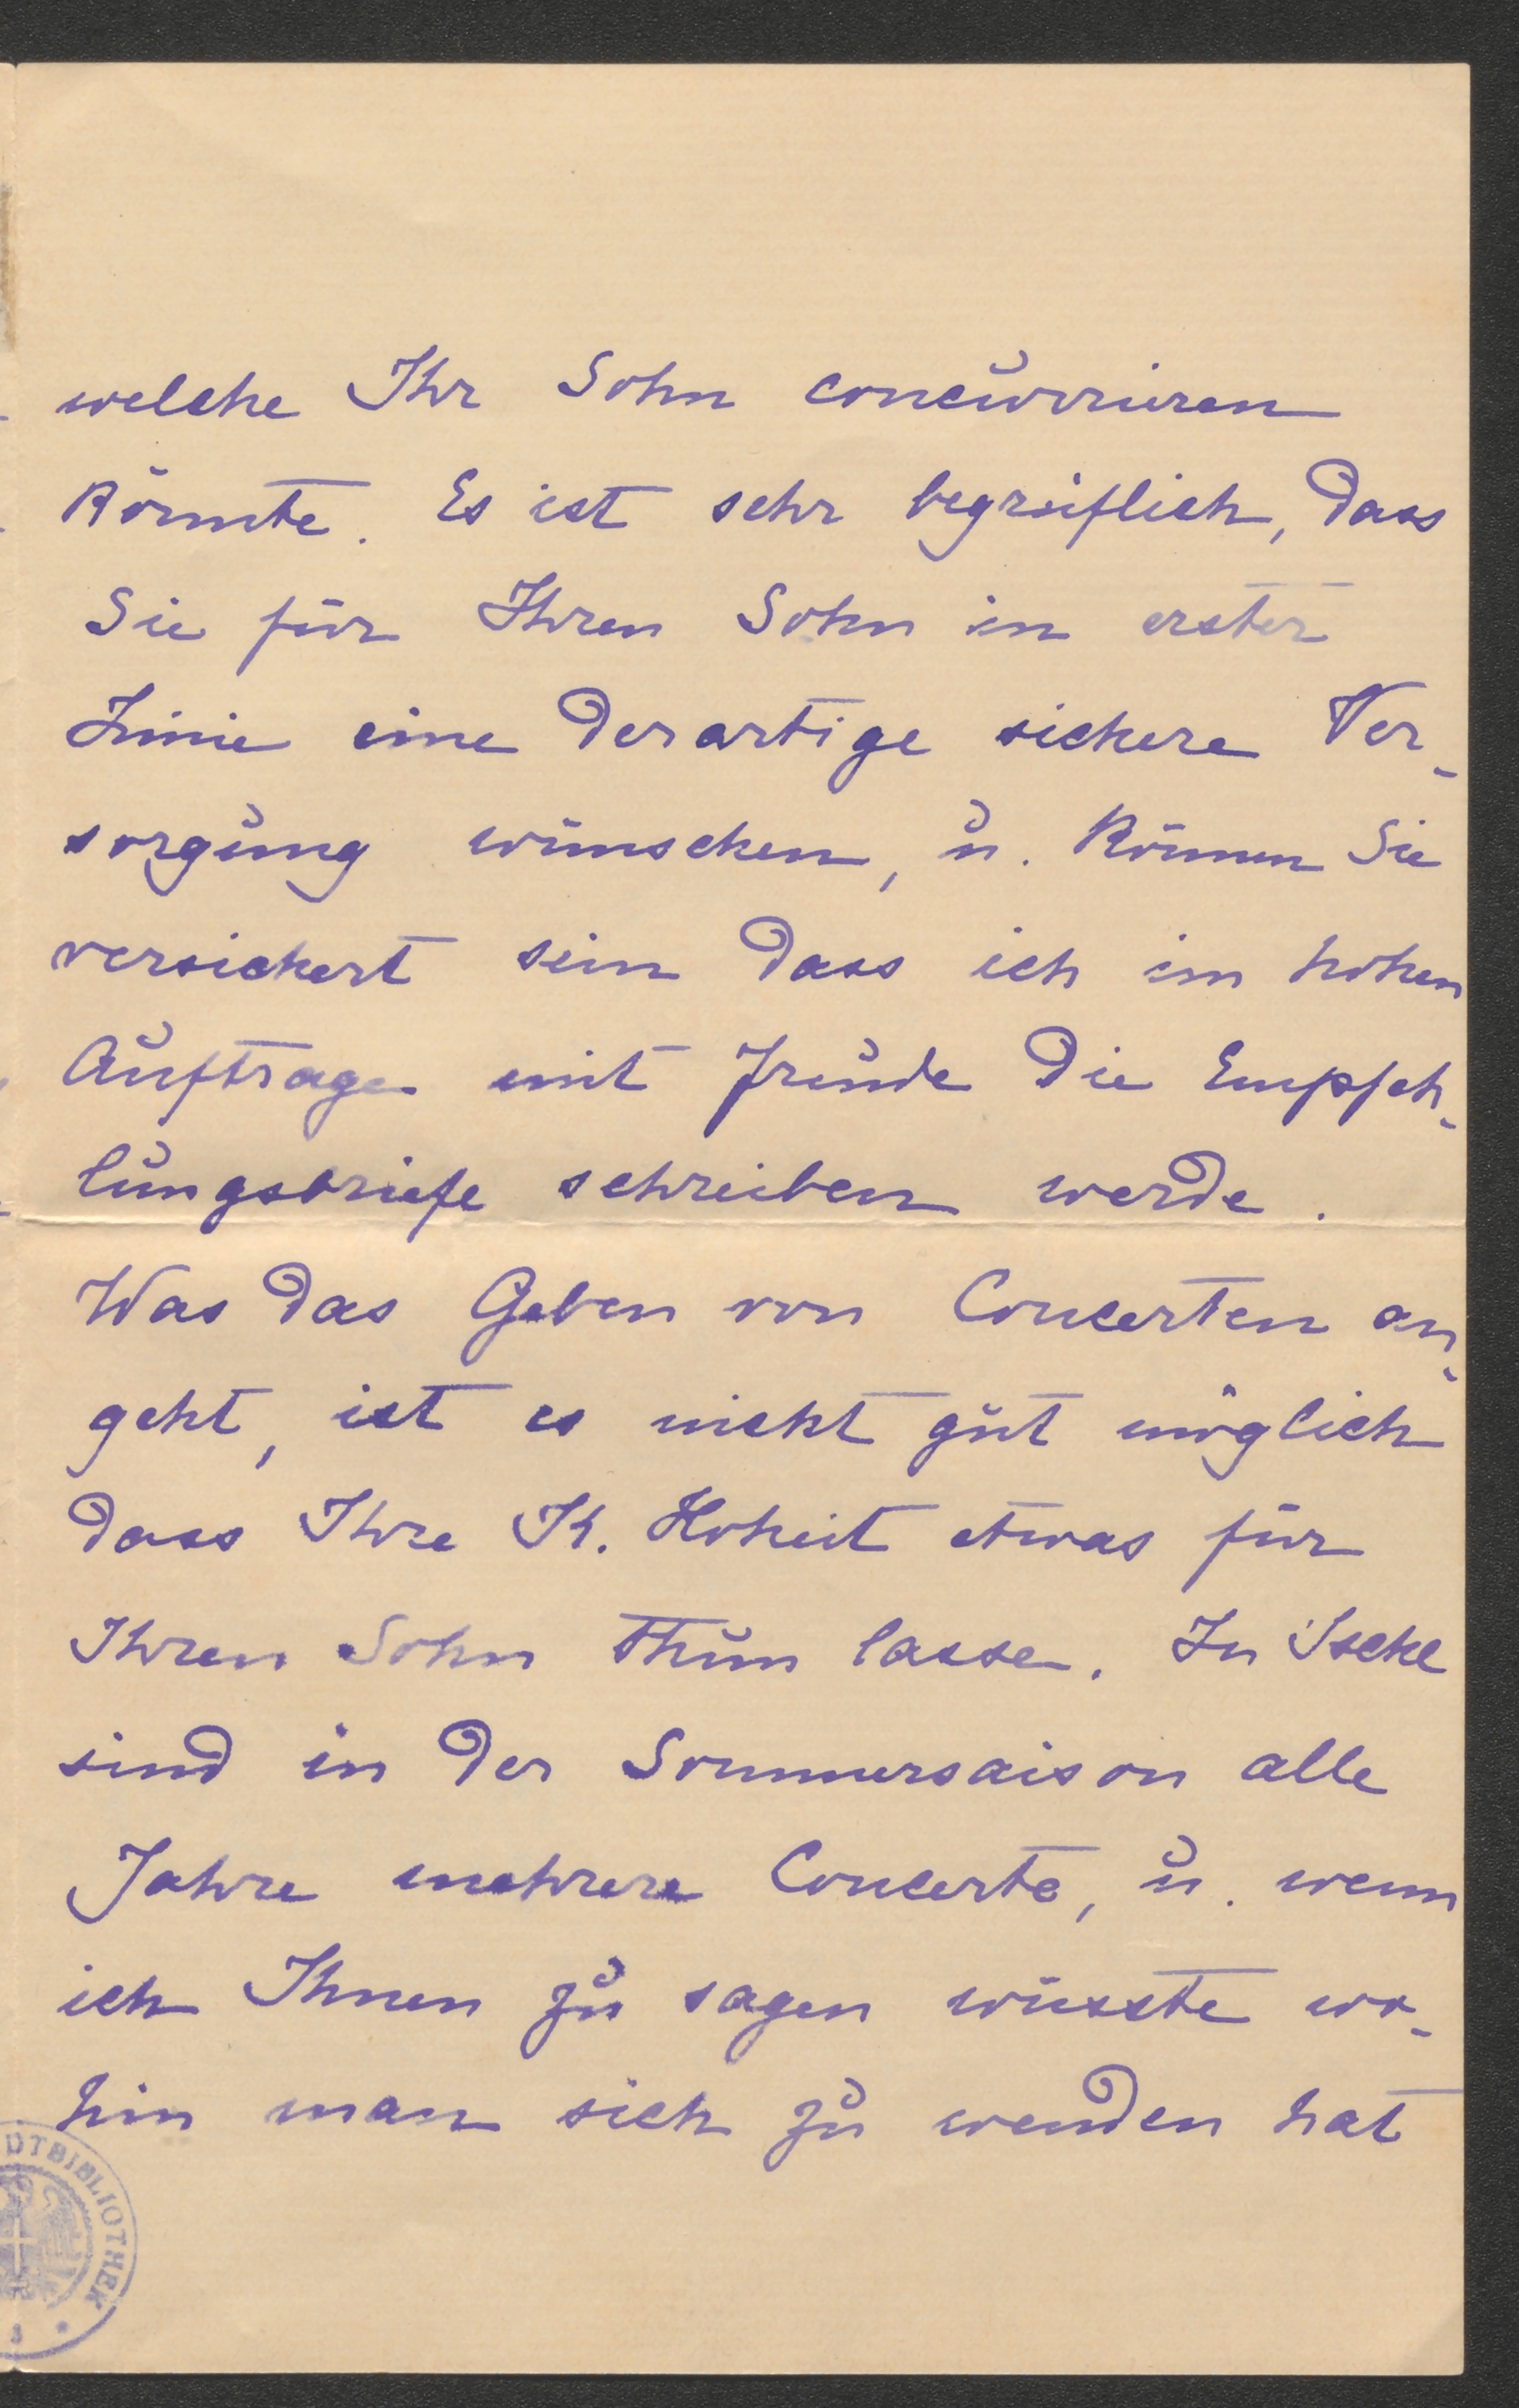 welche Ihr Sohn concurrieren
könnte. Es ist sehr begreiflich, dass
Sie für Ihren Sohn in erster
Linie eine derartige sichere Ver-
sorgung wünschen, u. können Sie
versichert sein dass ich im hohen
Auftrage mit Freude die Empfeh-
lungsbriefe schreiben werde.
Was das Geben von Concerten an-
geht, ist es nicht gut möglich
dass Ihre K. Hoheit etwas für
Ihren Sohn thun lasse. In Ischl
sind in der Sommersaison alle
Jahre mehrere Concerte, u. wenn
ich Ihnen zu sagen wüsste wo-
hin man sich zu wenden hat
DTBIBLIOTHEK